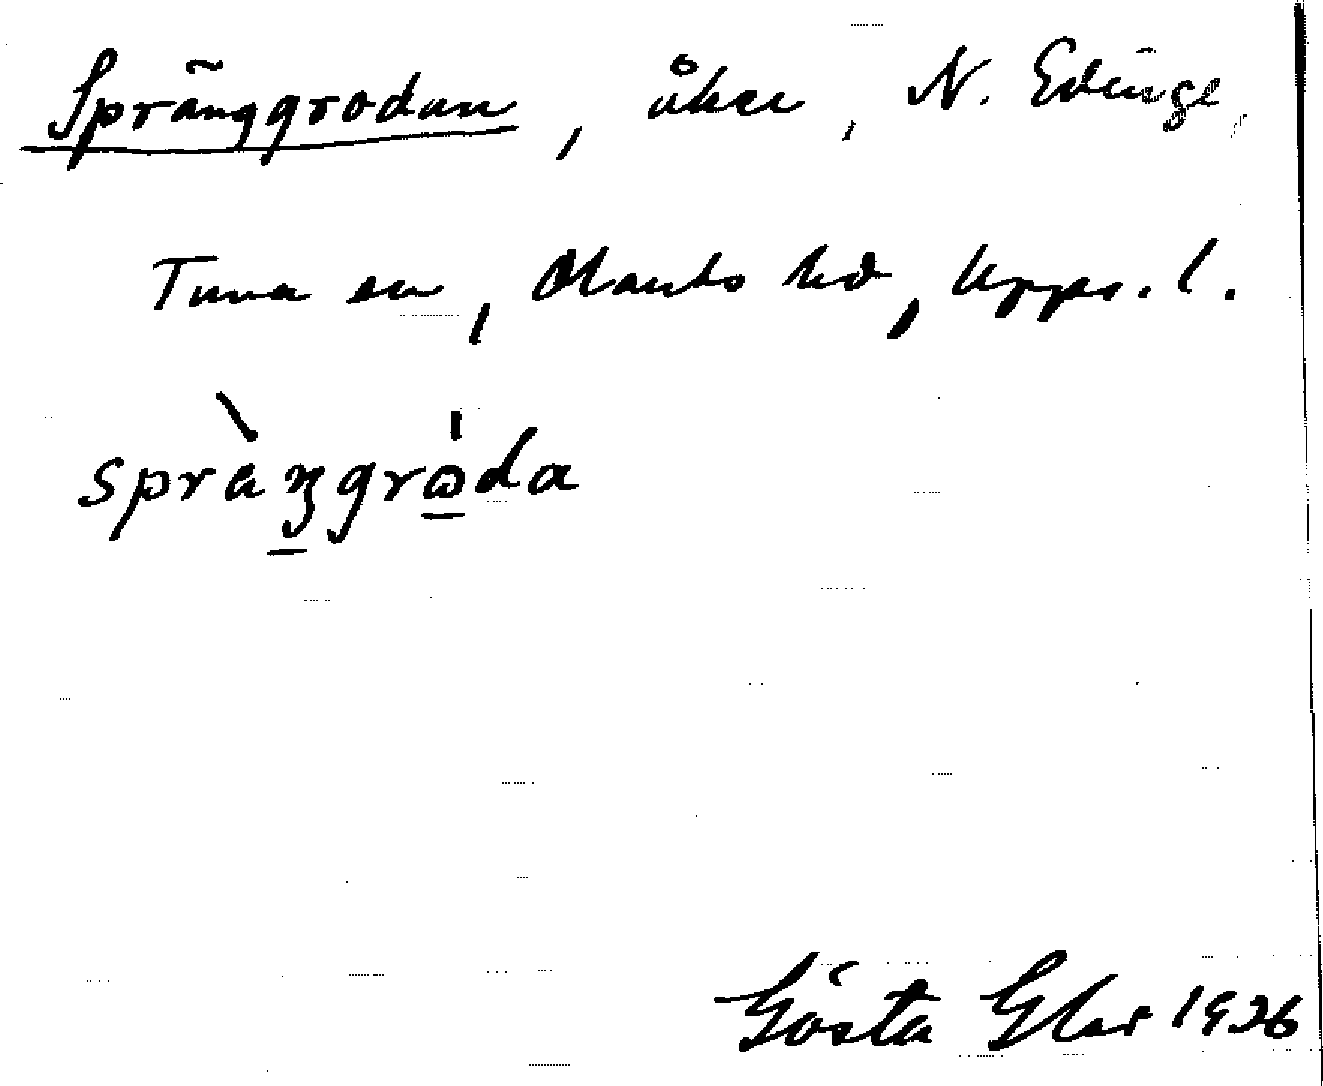 Spränggrodan, åker, N. Edinge,
Tuna sn, Olands hd, Upps. l.
spràŋgrὼda
Gösta Elas 1926